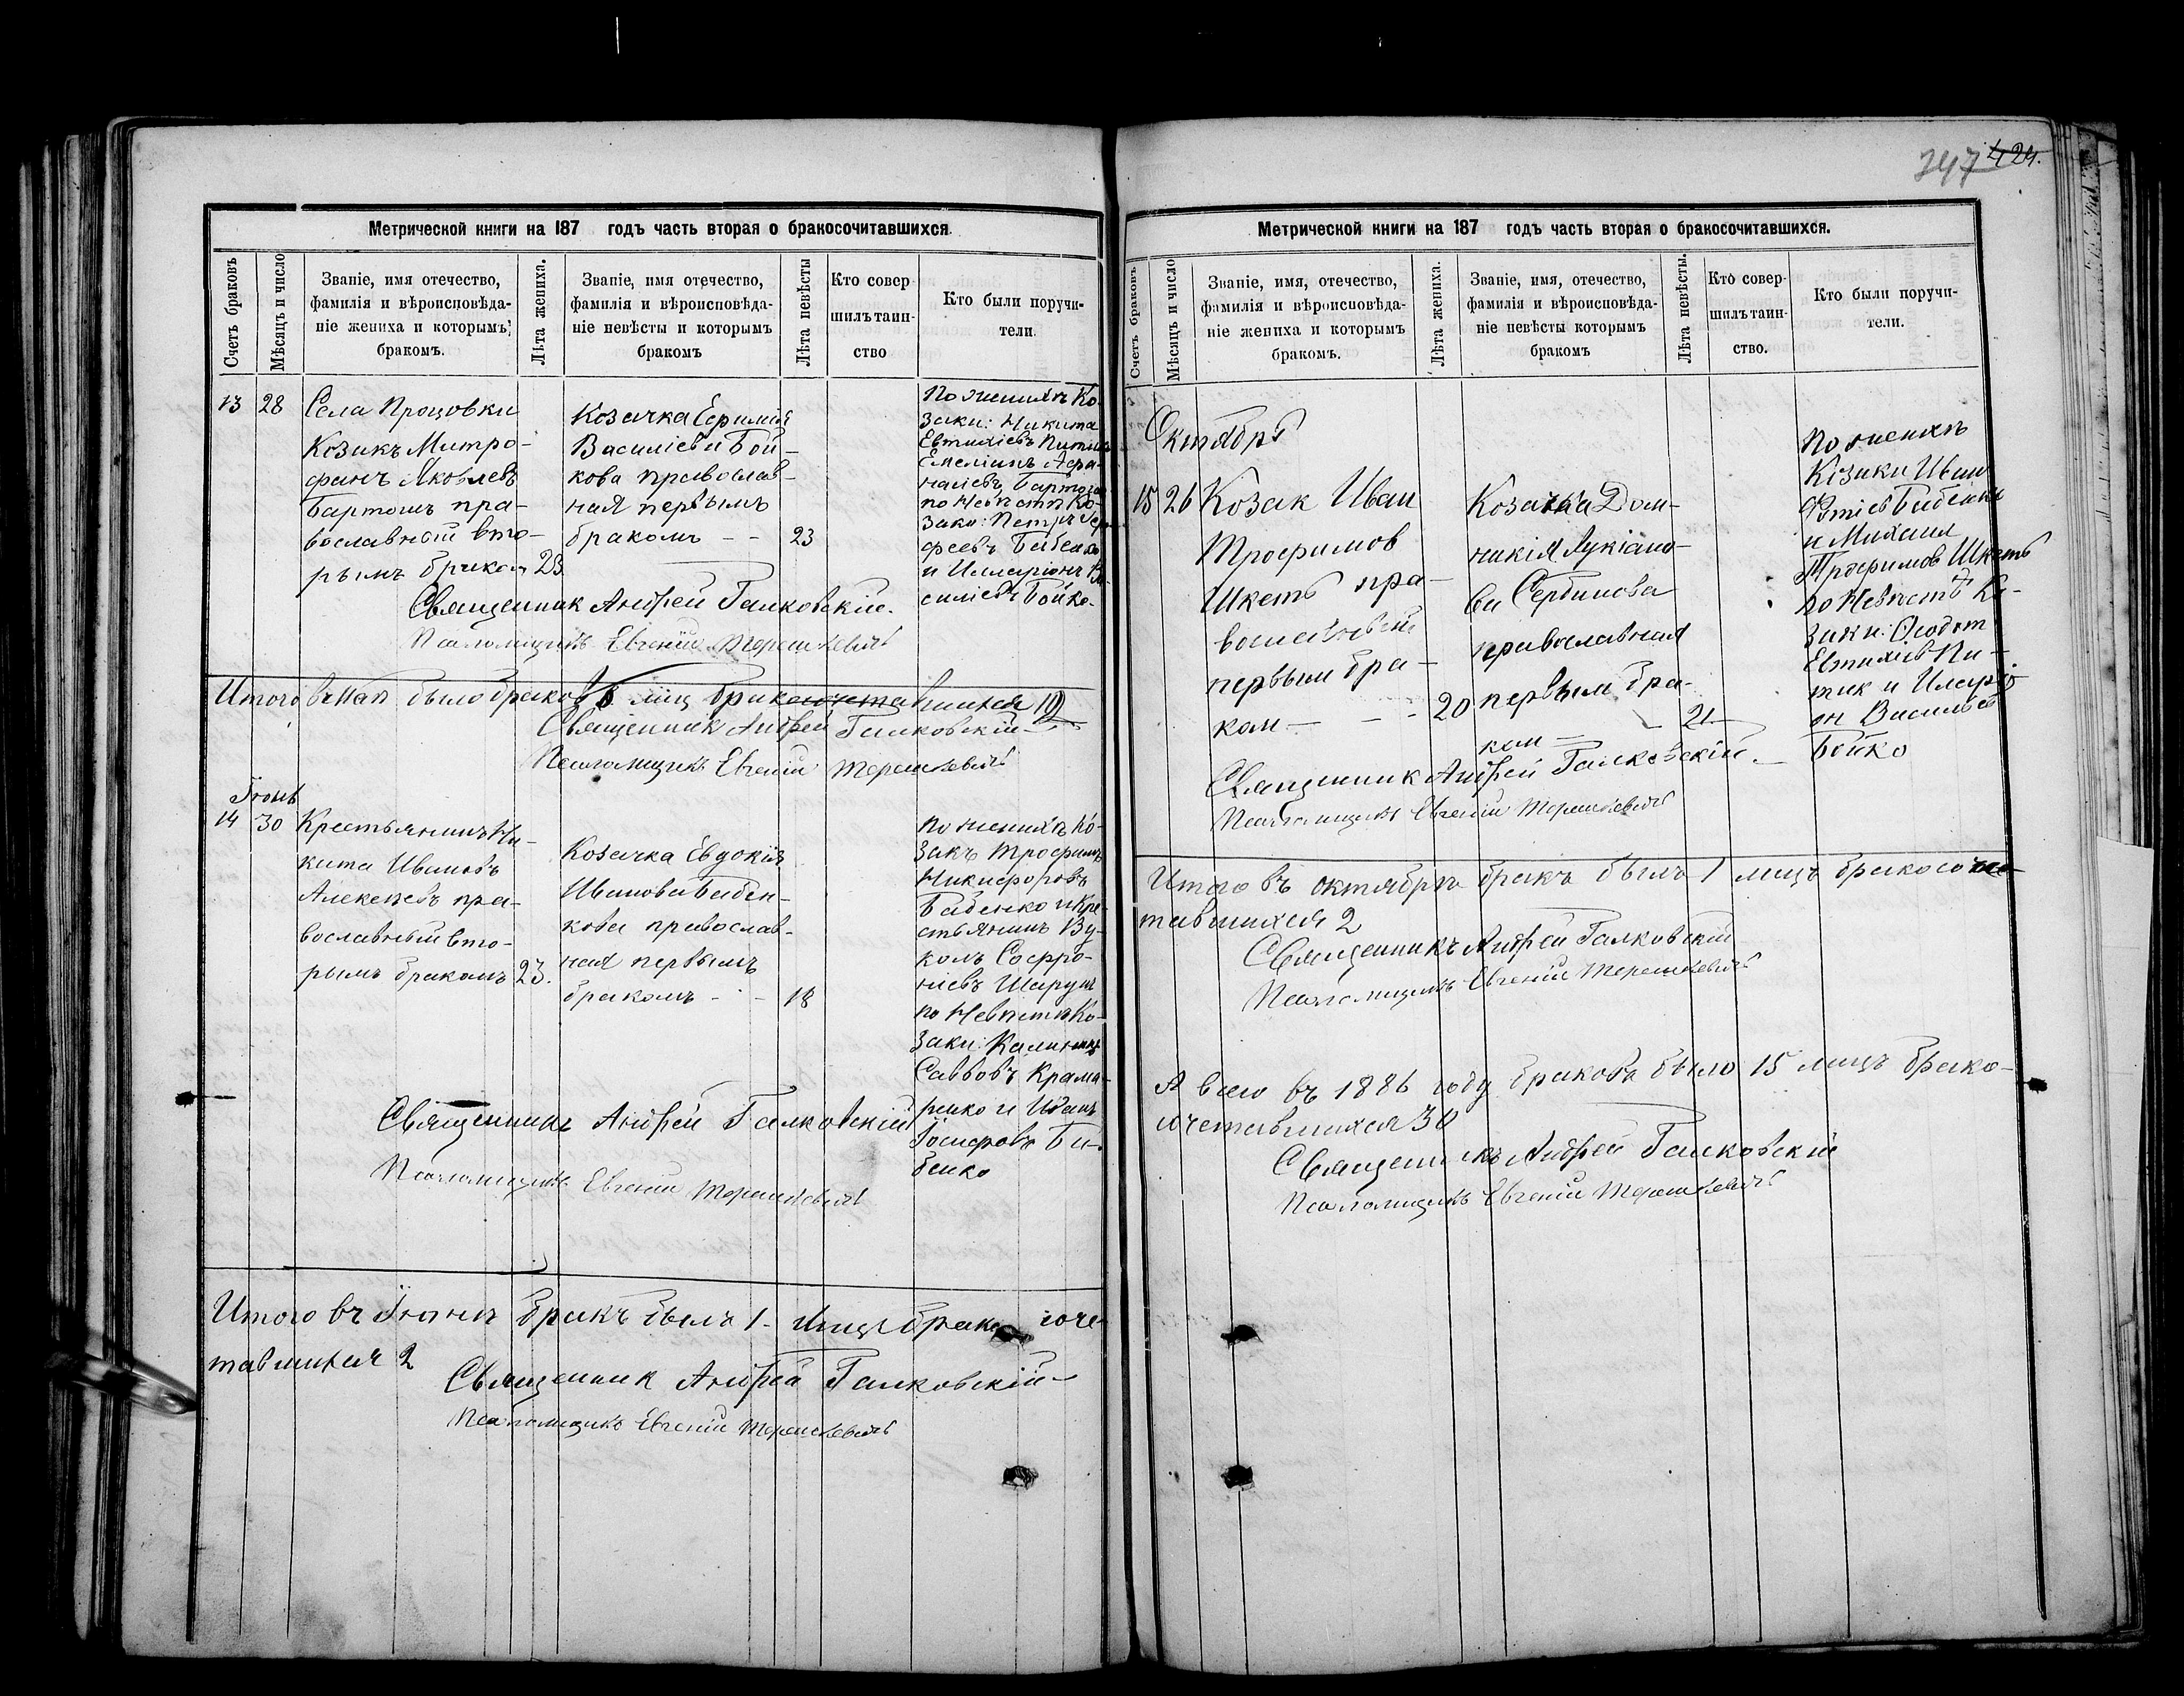 Метрической книги на 187 годъ часть вторая о бракосочитавшихся.
Счетъ браковъ
Мѣсяцъ и число
Званіе, имя отечество,
фамилія и вѣроисповѣда-
ніе жениха и которымъ
бракомъ.
Лѣта жениха.
Званіе, имя отечество,
фамилія и вѣроисповѣда-
ніе невѣсты и которымъ
бракомъ
Лѣта невѣсты
Кто совер-
шилъ таин-
ство
Кто были поручи-
тели.
13 28
Села Процовки
Козакъ Митро-
фанъ Яковлевъ
Бартошъ пра-
вославный вто-
рымъ браком 23
Козачка Евфимія
Василіева Бой-
кова православ-
ная первымъ
бракомъ - - 23
По женихѣ Ко-
заки: Никита
Евтихіевъ
Емеліанъ Афа-
насіевъ Бартошъ
по Невѣстѣ Ко-
заки: Петръ
феевъ Бабенко
и Илларіонъ Ва-
силіевъ Бойко.
Священник Андрей Галковскій.
Псаломщикъ Евгеній Терешкевичъ
Итого въ Маѣ было браков 6 лиц бракосочетавшихся 12
Священник Андрей Галковскій
Псаломщикъ Евгеній Терешкевичъ
Іюнь
14 30
Крестьянинъ Ни-
кита Ивановъ
Алексѣевъ пра-
вославный вто-
рымъ бракомъ 23.
Козачка Евдокія
Иванова Бабен-
кова православ-
ная первымъ
бракомъ - - 18
По женихѣ Ко-
закъ Трофимъ
Никифоровъ
Бабенко и Кре-
стьянинъ Ву-
колъ Софро-
ніевъ Шарун
по Невѣстѣ Ко-
заки: Калинникъ
Саввовъ Крама-
ренко и Иванъ
Іосифовъ Ба-
бенко
Священникъ Андрей Галковскій
Псаломщикъ Евгеній Терешкевичъ
Итого въ Іюнѣ бракъ былъ 1. лицъ бракосоче-
тавшихся 2
Священник Андрей Галковскій
Псаломщикъ Евгеній Терешкевичъ
347 424.
Метрической книги на 187 годъ часть вторая о бракосочитавшихся.
Счетъ браковъ
Мѣсяцъ и число
Званіе, имя, отечество,
фамилія и вѣроисповѣда-
ніе жениха и которымъ
бракомъ.
Лѣта жениха.
Званіе, имя, отечество,
фамилія и вѣроисповѣда-
ніе невѣсты которымъ
бракомъ
Лѣта невѣсты.
Кто совер-
шилъ таин-
ство.
Кто были поручи-
тели.
Октябрь
15 26
Козак Иван
Трофимов
Шкеть пра-
вославный
первым бра-
ком - - - 20
Козачка Дом-
никія Лукіано-
ва Сербинова
православная
первым бра-
ком - - 21
По женихѣ
Козаки Иван
Бабенко
и Михаил
Трофимов Шкеть
по Невѣстѣ Ко-
заки: Феодот
Евтихіев Пи-
тик и Иларіо-
он Васильев
Бойко
Священник Андрей Галковскій.
Псаломщикъ Евгеній Терешкевичъ
Итого въ октябрѣ бракъ былъ 1 лицъ бракосоче-
тавшихся 2
Священникъ Андрей Галковскій
Псаломщикъ Евгеній Терешкевичъ
А всего въ 1886 году браковъ было 15 лицъ брако-
сочетавшихся 30
Священникъ Андрей Галковскій
Псаломщикъ Евгеній Терешкевичъ